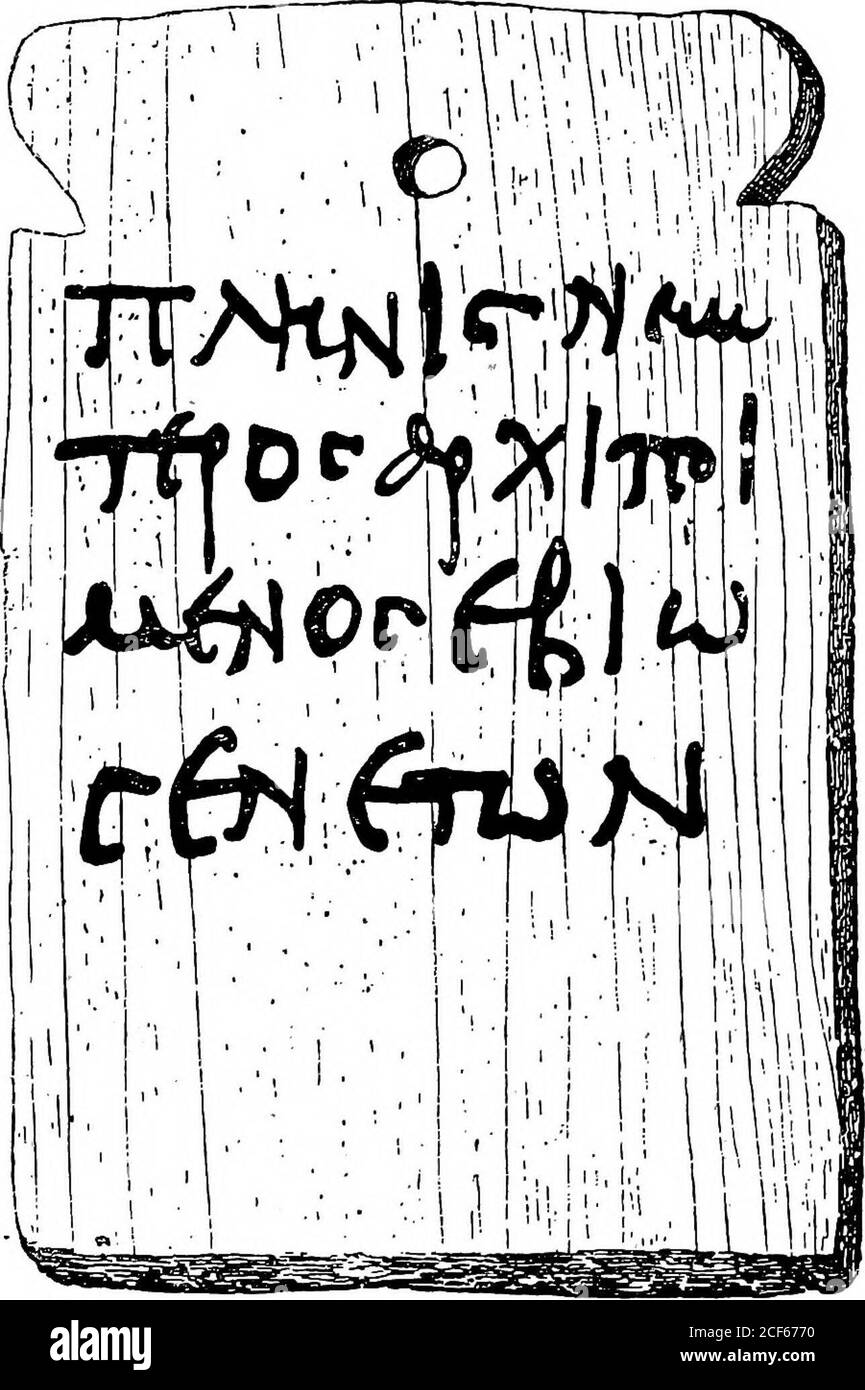 πληνις νεω
τερος αρχιποι
μενος εβιω
σεν ετων
alamy
Image ID: 2CF6770
www.alamy.com